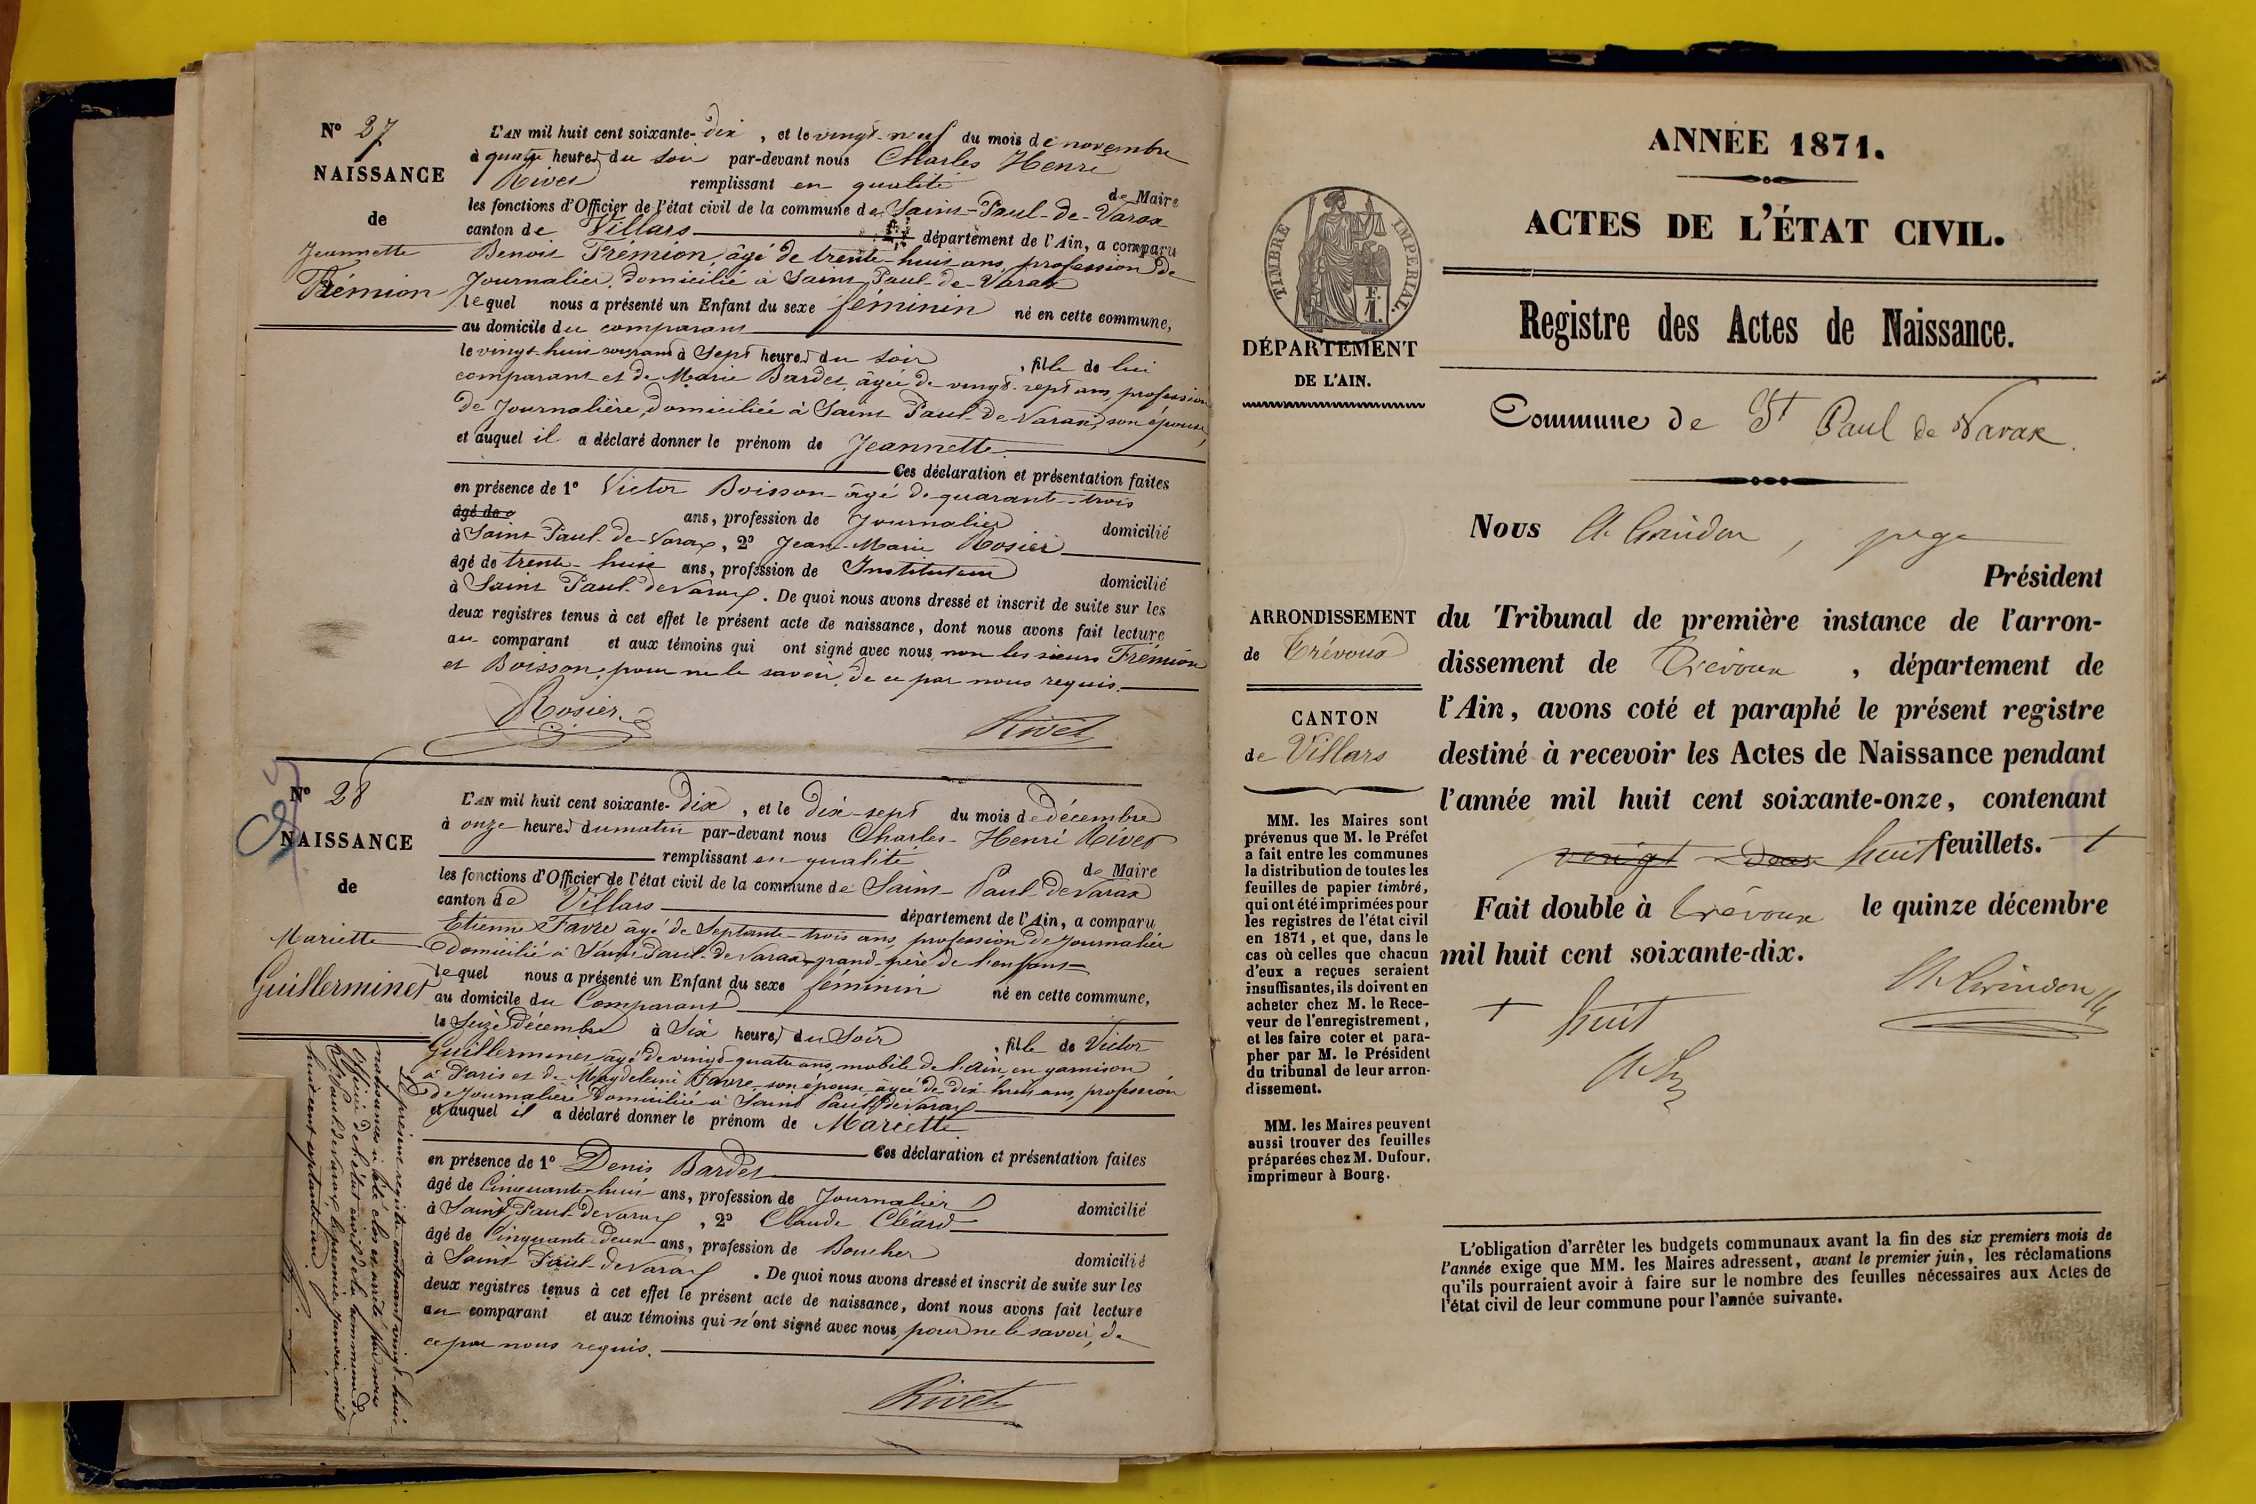 N° 27
NAISSANCE
de
Jeannette
Frémion
L'AN mil huit cent soixante-dix, et le vingt-neuf du mois de novembre
à quatre heures du soir par-devant nous Charles Henri
Rivet remplissant en qualité de Maire
les fonctions d'Officier de l'état civil de la commune de Saint-Paul-de-Varax
canton de Villars département de l'Ain, a comparu
Benoit Frémion, âgé de trente-huit ans, profession de
Journalier, domicilié à Saint Paul-de-Varax
lequel nous a présenté un Enfant du sexe féminin né en cette commune,
au domicile du comparant
le vingt-huit courant à Sept heures du soir, fille de lui
comparant et de Marie Bardet, âgée de vingt-sept ans, profession
de Journalière, domiciliée à Saint Paul-de-Varax, son épouse,
et auquel il a déclaré donner le prénom de Jeannette
Ces déclaration et présentation faites
en présence de 1° Victor Boisson âgé de quarante-trois
âgé de ans, profession de Journalier domicilié
à Saint Paul-de-Varax, 2° Jean-Marie Rosier
âgé de trente-huit ans, profession de Instituteur domicilié
à Saint Paul-de-Varax. De quoi nous avons dressé et inscrit de suite sur les
deux registres tenus à cet effet le présent acte de naissance, dont nous avons fait lecture
au comparant et aux témoins qui ont signé avec nous, non les sieurs Frémion
et Boisson, pour ne le savoir, de ce par nous requis.
Rosier Rivet
N° 28
NAISSANCE
de
Mariette
Guillerminet
L'AN mil huit cent soixante-dix, et le dix-sept du mois de décembre
à onze heures du matin par-devant nous Charles-Henri Rivet
remplissant en qualité de Maire
les fonctions d'Officier de l'état civil de la commune de Saint-Paul-de-Varax
canton de Villars département de l'Ain, a comparu
Etienne Favre âgé de Septante-trois ans, profession de Journalier
Domicilié à Saint-Paul-de-Varax, grand-père de l'enfant
lequel nous a présenté un Enfant du sexe féminin né en cette commune,
au domicile du Comparant
le Seize Décembre à Six heures du Soir, fille de Victor
Guillerminet, âgé de vingt-quatre ans, mobile de l'Ain, en garnison
à Paris et de Magdeleine Favre, son épouse, âgée de dix-huit ans, profession
de Journalière Domiciliée à Saint Paul-de-Varax
et auquel il a déclaré donner le prénom de Mariette
Ces déclaration et présentation faites
en présence de 1° Denis Bardet
âgé de Cinquante-huit ans, profession de Journalier domicilié
à Saint Paul-de-Varax, 2° Claude Cléard
âgé de Cinquante-deux ans, profession de Boucher domicilié
à Saint Paul-de-Varax. De quoi nous avons dressé et inscrit de suite sur les
deux registres tenus à cet effet le présent acte de naissance, dont nous avons fait lecture
au comparant et aux témoins qui n'ont signé avec nous, pour ne le savoir, de
ce par nous requis.
Rivet
Le présent registre contenant vingt-huit
naissances a été clos et arrêté par nous
officier de l'état civil de la commune de
St Paul-de-Varax, le premier janvier mil
huit cent septante un.
ANNÉE 1871.
ACTES DE L'ÉTAT CIVIL.
TIMBRE IMPÉRIAL.
F.
1.
DÉPARTEMENT
DE L'AIN.
Registre des Actes de Naissance.
Commune de St Paul de Varax.
Nous juge
Président
ARRONDISSEMENT
de Trévoux
du Tribunal de première instance de l'arron-
dissement de Trévoux, département de
l'Ain, avons coté et paraphé le présent registre
destiné à recevoir les Actes de Naissance pendant
l'année mil huit cent soixante-onze, contenant
vingt-deux huit feuillets. +
Fait double à Trévoux le quinze décembre
mil huit cent soixante-dix.
+ huit
CANTON
de Villars
MM. les Maires sont
prévenus que M. le Préfet
a fait entre les communes
la distribution de toutes les
feuilles de papier timbré,
qui ont été imprimées pour
les registres de l'état civil
en 1871, et que, dans le
cas où celles que chacun
d'eux a reçues seraient
insuffisantes, ils doivent en
acheter chez M. le Rece-
veur de l'enregistrement,
et les faire coter et para-
pher par M. le Président
du tribunal de leur arron-
dissement.
MM. les Maires peuvent
aussi trouver des feuilles
préparées chez M. Dufour,
imprimeur à Bourg.
L'obligation d'arrêter les budgets communaux avant la fin des six premiers mois de
l'année exige que MM. les Maires adressent, avant le premier juin, les réclamations
qu'ils pourraient avoir à faire sur le nombre des feuilles nécessaires aux Actes de
l'état civil de leur commune pour l'année suivante.